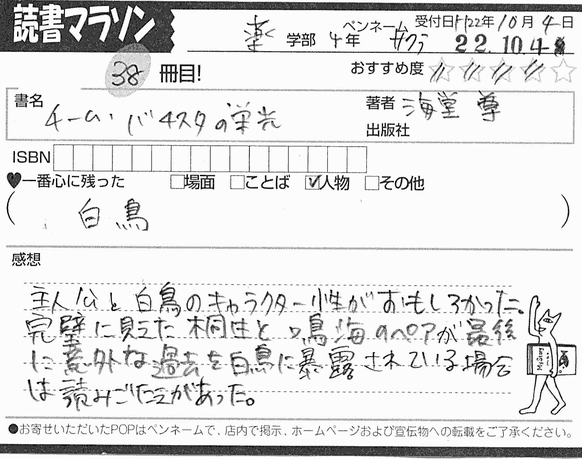 読書マラソン
薬 学部 4年 ペンネーム サクラ 受付日H22年10月4日
22.10.4
38 冊目! おすすめ度 ☆☆☆☆☆
書名 チーム・バチスタの栄光 著者 海堂 尊
出版社
ISBN
♥一番心に残った □場面 □ことば ☑人物 □その他
( 白鳥 )
感想
主人公と白鳥のキャラクター性がおもしろかった。
完璧に見えた桐生と鳴海のペアが最後
に意外な過去を白鳥に暴露されている場合
は読みごたえがあった。
●お寄せいただいたPOPはペンネームで、店内で掲示、ホームページおよび宣伝物への転載をご了承ください。